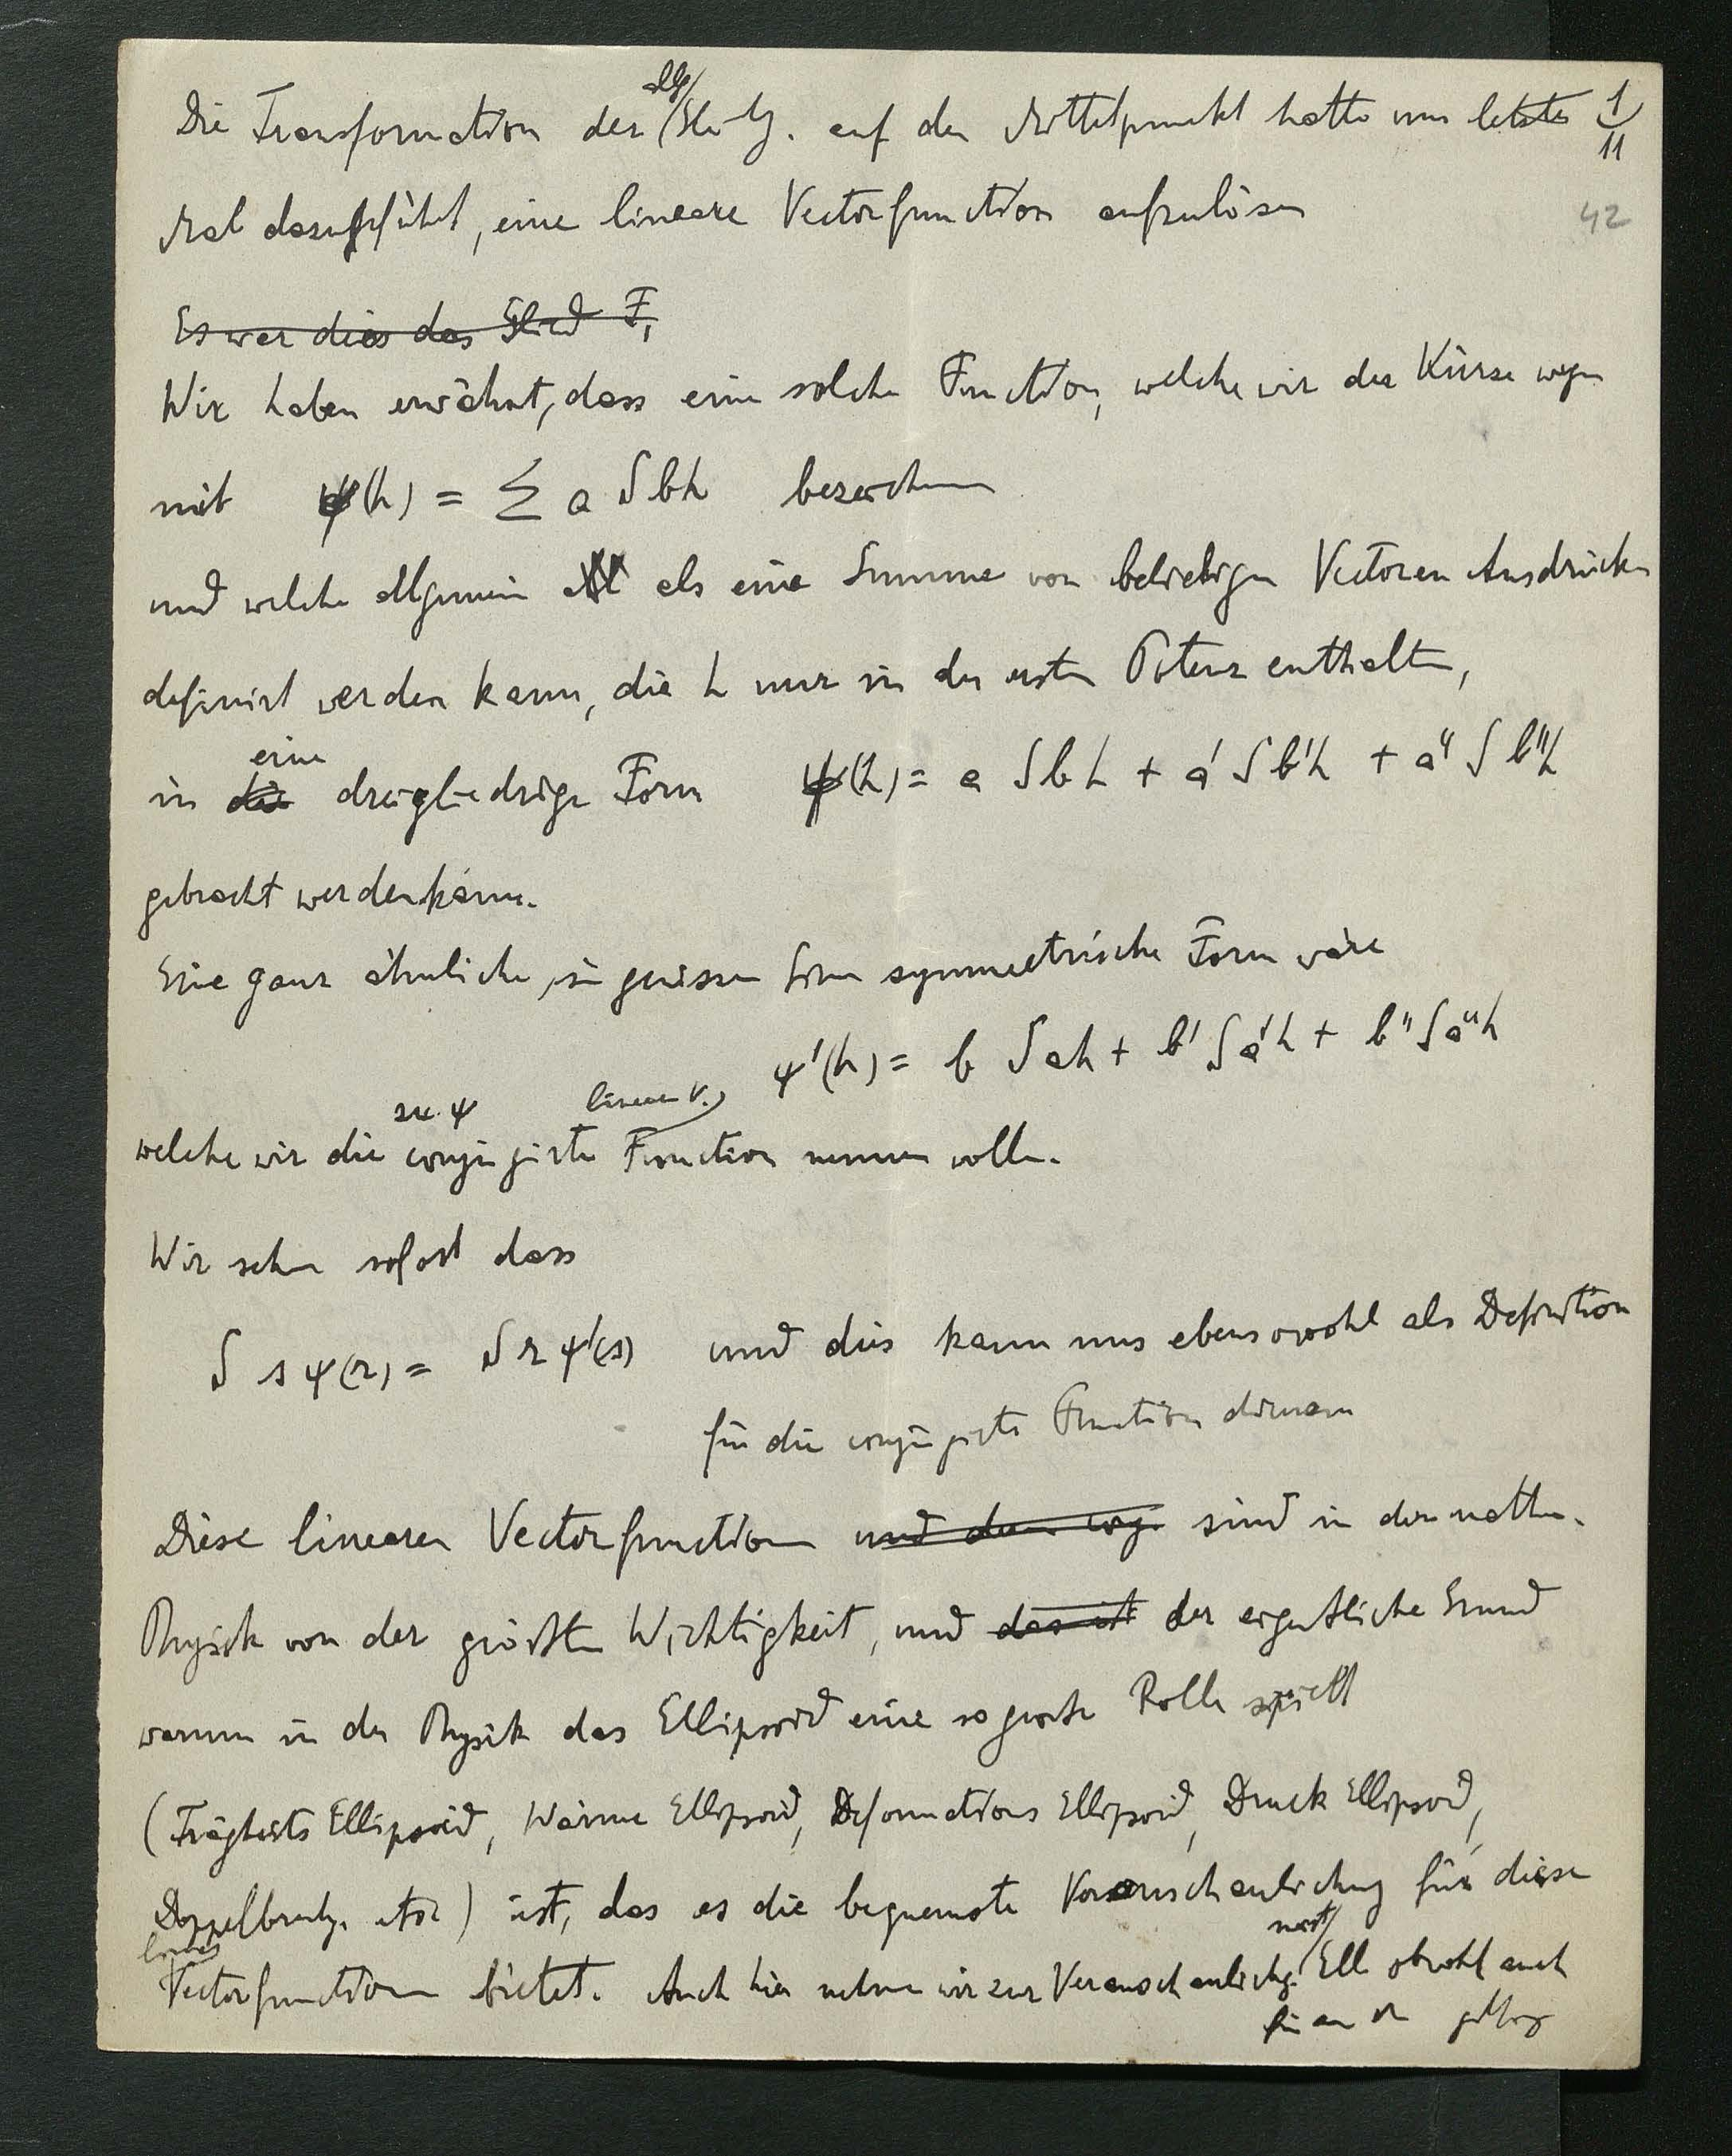 Die Transformation der allg/ Glchg. auf den Mittelpunkt hatte uns letztes 1/11
Mal dazu geführt, eine lineare Vectorfunction aufzulösen
42
Es war dies das Glied F₁
Wir haben erwähnt, dass eine solche Function, welche wir der Kürze wegen
mit ψ(h) = Σ a S b h bezeichnen
und welche allgemein als eine Summe von beliebigen Vectoren Ausdrücken
definirt werden kann, die h nur in der ersten Potenz enthalten,
eine
in die dreigliedrige Form ψ(h) = a S b h + a' S b' h + a" S b" h
gebracht werden kann.
Eine ganz ähnliche, in gewissen Sinn symmetrische Form wäre
ψ'(h) = b S a h + b' S a' h + b" S a" h
zu ψ linear V.
welche wir die conjugirte Function nennen wollen.
Wir sehen sofort dass
S s ψ(r) = S r ψ'(s) und dies kann uns ebensowohl als Definition
für die conjugirte Function dienen
Diese linearen Vectorfunctionen und deren conj. sind in der math.
Physik von der größten Wichtigkeit, und das ist der eigentliche Grund
warum in der Physik das Ellipsoid eine so grosse Rolle spielt
(Trägheits Ellipsoid, Wärme Ellipsoid, Deformations Ellipsoid, Druck Ellipsoid,
Doppelbrechg. etc) ist, das es die bequemste Veranschaulichung für diese
linear
Vectorfunctionen bietet. Auch hier nehmen wir zur Veranschaulichg. meist/ Ell obwohl auch
für and giltig